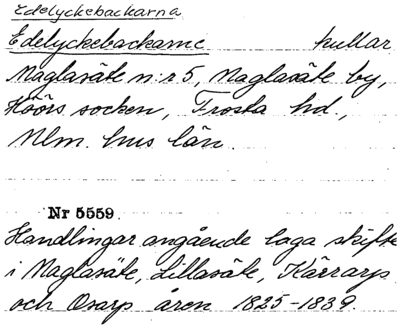 Edelyckebackarna
Edelyckebackarne kullar
Maglasäte n:r 5, Maglasäte by,
Höörs socken, Frosta hd.,
Mlm. hus län.
Nr 5559.
Handlingar angående laga skifte
i Maglasäte, Lillasäte, Kärrarp
och Osarp åren 1825-1839.